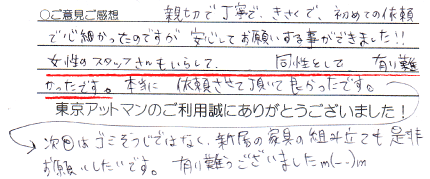 ○ご意見ご感想
親切で丁寧で、きさくで、初めての依頼
で心細かったのですが安心してお願いする事ができました!!
女性のスタッフさんもいらして、同性として、有り難
かったです。本当に依頼させて頂いて良かったです。
東京アットマンのご利用誠にありがとうございました！
次回はゴミそうじではない、新居の家具の組み立ても是非
お願いしたいです。有り難うございましたm(--)m